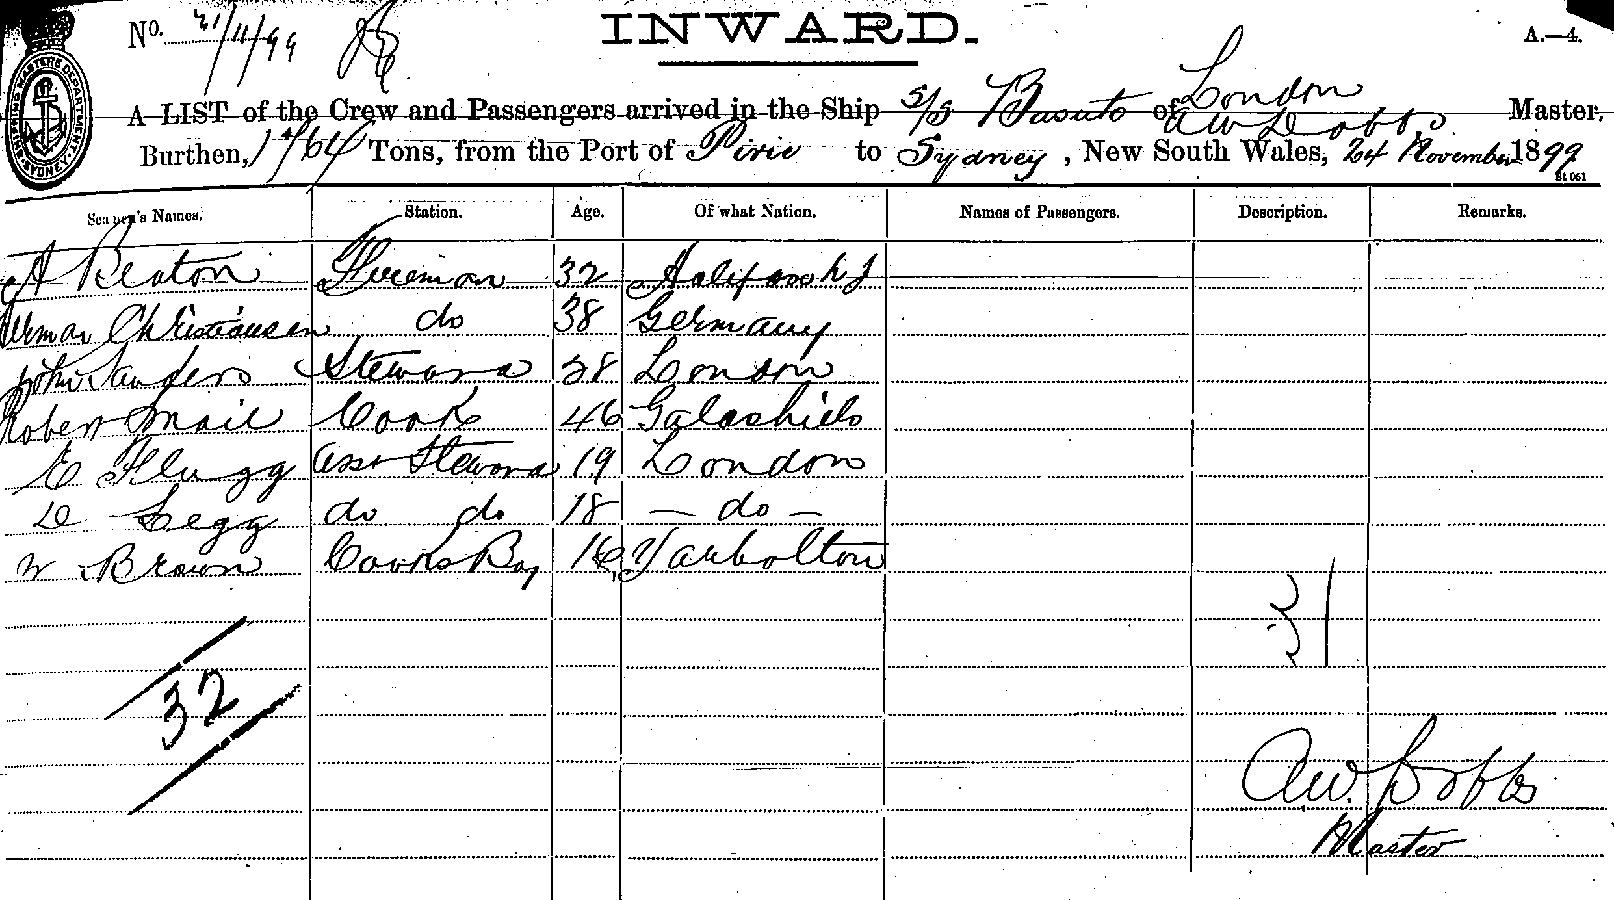 No. 21/11/99
INWARD.
A.—4.
A LIST of the Crew and Passengers arrived in the Ship S/S Basuto of London
A W Dobbs Master,
Burthen, 1764 Tons, from the Port of Pirie to Sydney, New South Wales, 24 November 1899
Seamen's Names. Station. Age. Of what Nation. Names of Passengers. Description. Remarks.
A Beaton Fireman 32 Halifax
Herman Christiansen do 38 Germany
John Sanders Steward 38 London
Robert Mail Cook 46 Galashiels
E Flugg Asst Steward 19 London
D Legg do do 18 — do —
W Brown Cooks Boy 16 Tarbolton
32
A.W. Dobbs
Master